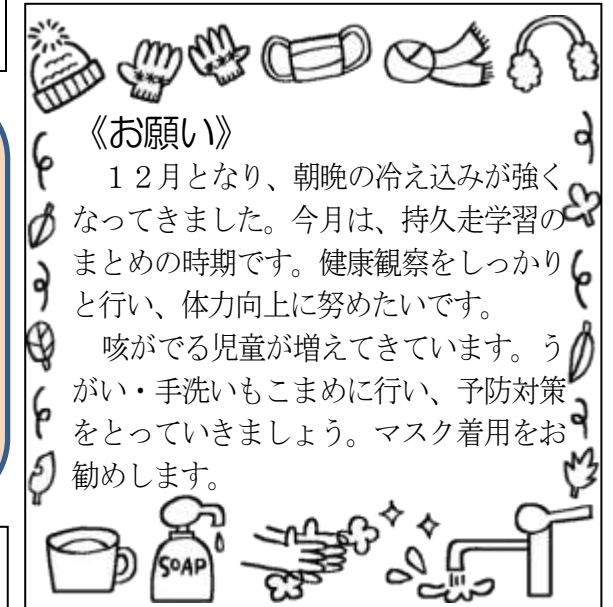 《お願い》
１２月となり、朝晩の冷え込みが強く
なってきました。今月は、持久走学習の
まとめの時期です。健康観察をしっかり
と行い、体力向上に努めたいです。
咳がでる児童が増えてきています。う
がい・手洗いもこまめに行い、予防対策
をとっていきましょう。マスク着用をお
勧めします。
SOAP